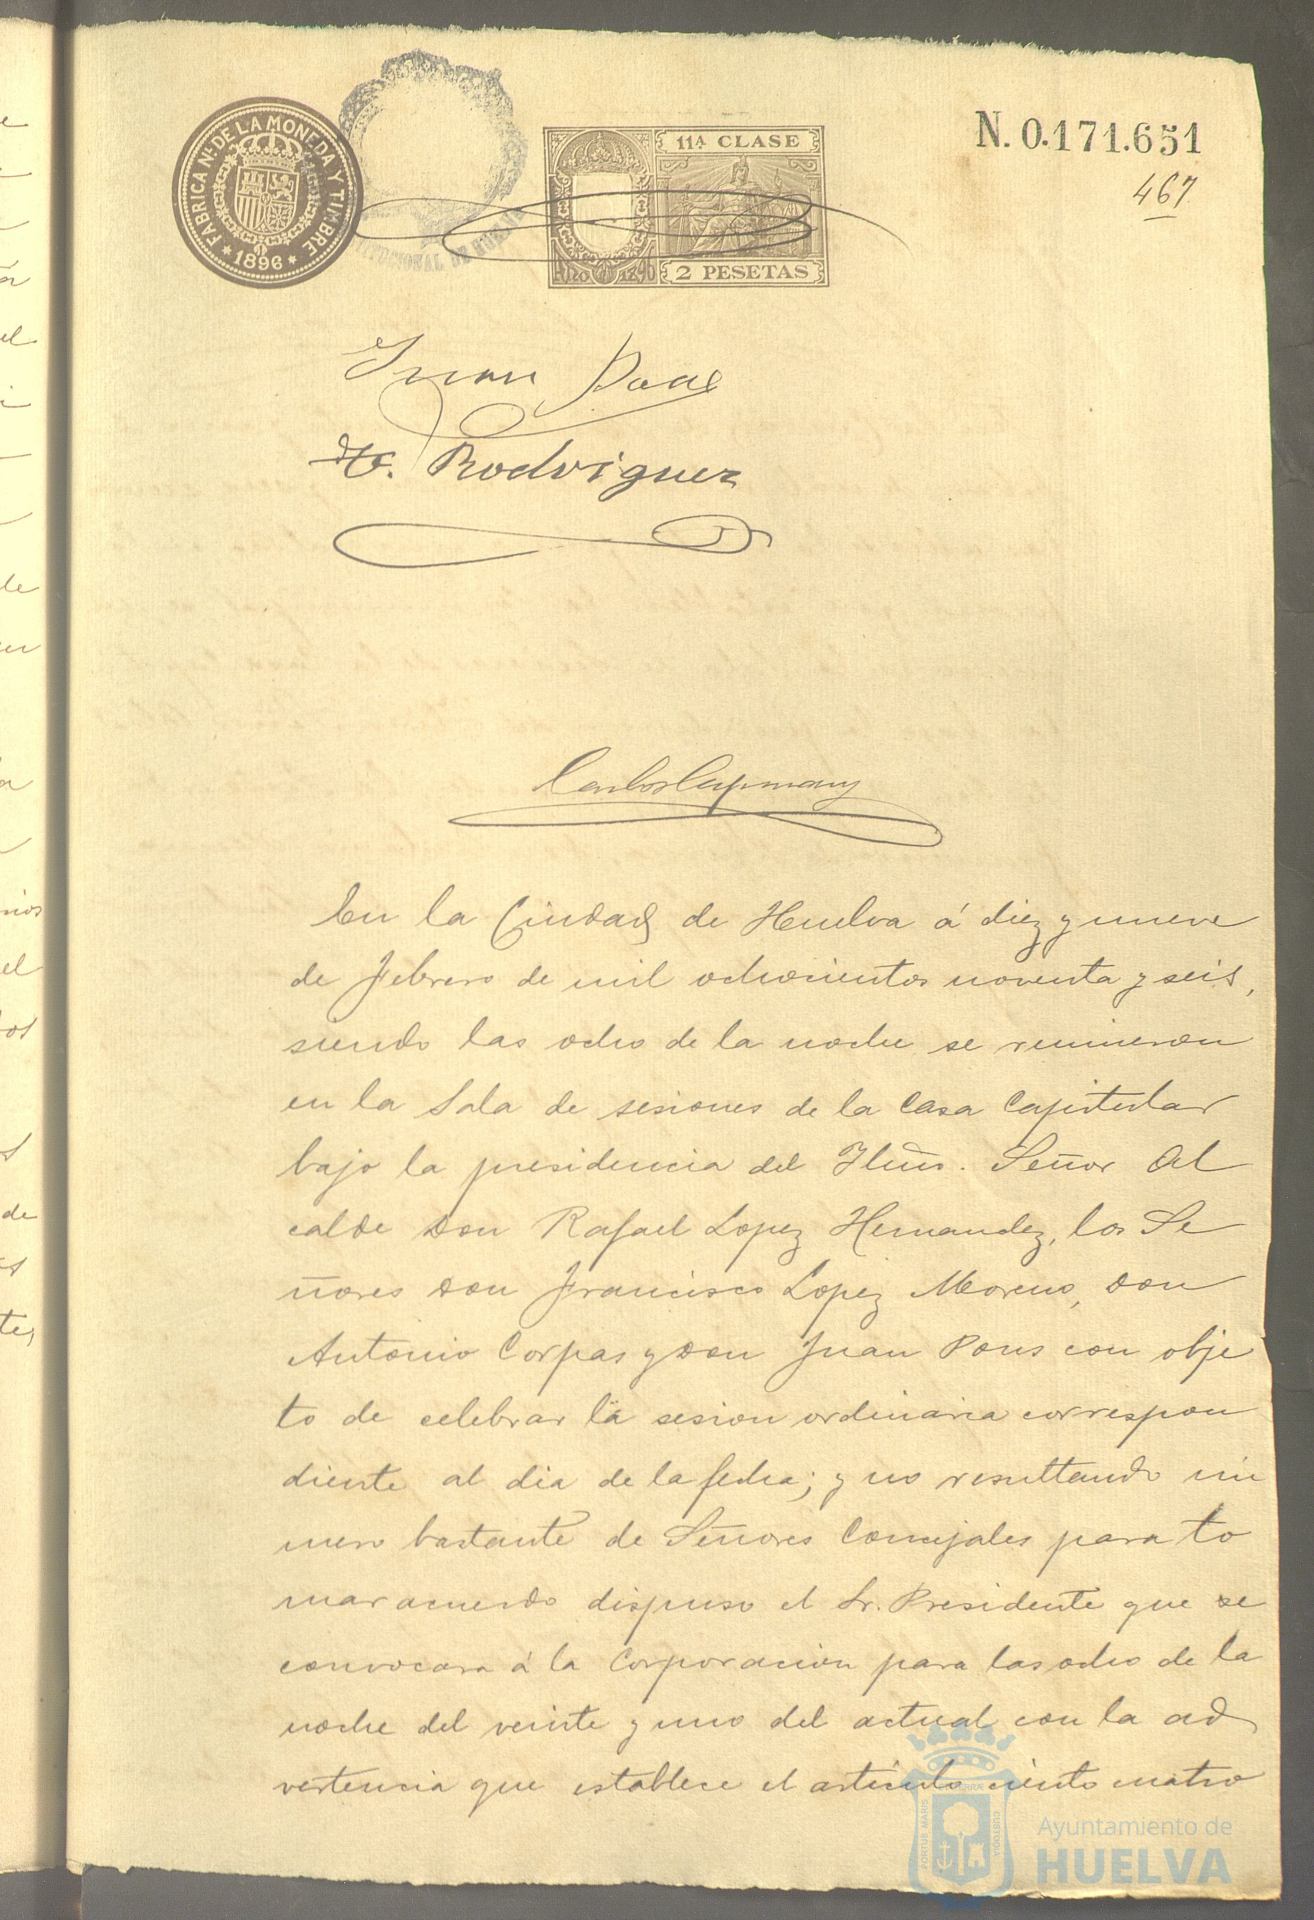 N. 0.171.651
467
FABRICA NAL. DE LA MONEDA Y TIMBRE
* 1896 *
11ª CLASE
2 PESETAS
Juan
Rodriguez
Carlos Capmany
En la Ciudad de Huelva á diez y nueve
de Febrero de mil ochocientos noventa y seis,
siendo las ocho de la noche se reunieron
en la Sala de sesiones de la Casa Capitular
bajo la presidencia del Iltmo. Señor Al
calde Don Rafael Lopez Hernandez, los Se
ñores Don Francisco Lopez Moreno, Don
Antonio Corpas y Don Juan Pons con obje
to de celebrar la sesion ordinaria correspon
diente al dia de la fecha; y no resultando nú
mero bastante de Señores Concejales para to
mar acuerdo dispuso el Sr. Presidente que se
convocara á la Corporacion para las ocho de la
noche del veinte y uno del actual con la ad
vertencia que establece el artículo ciento cuatro
PORTUS MARIS
CUSTODIA
Ayuntamiento de
HUELVA